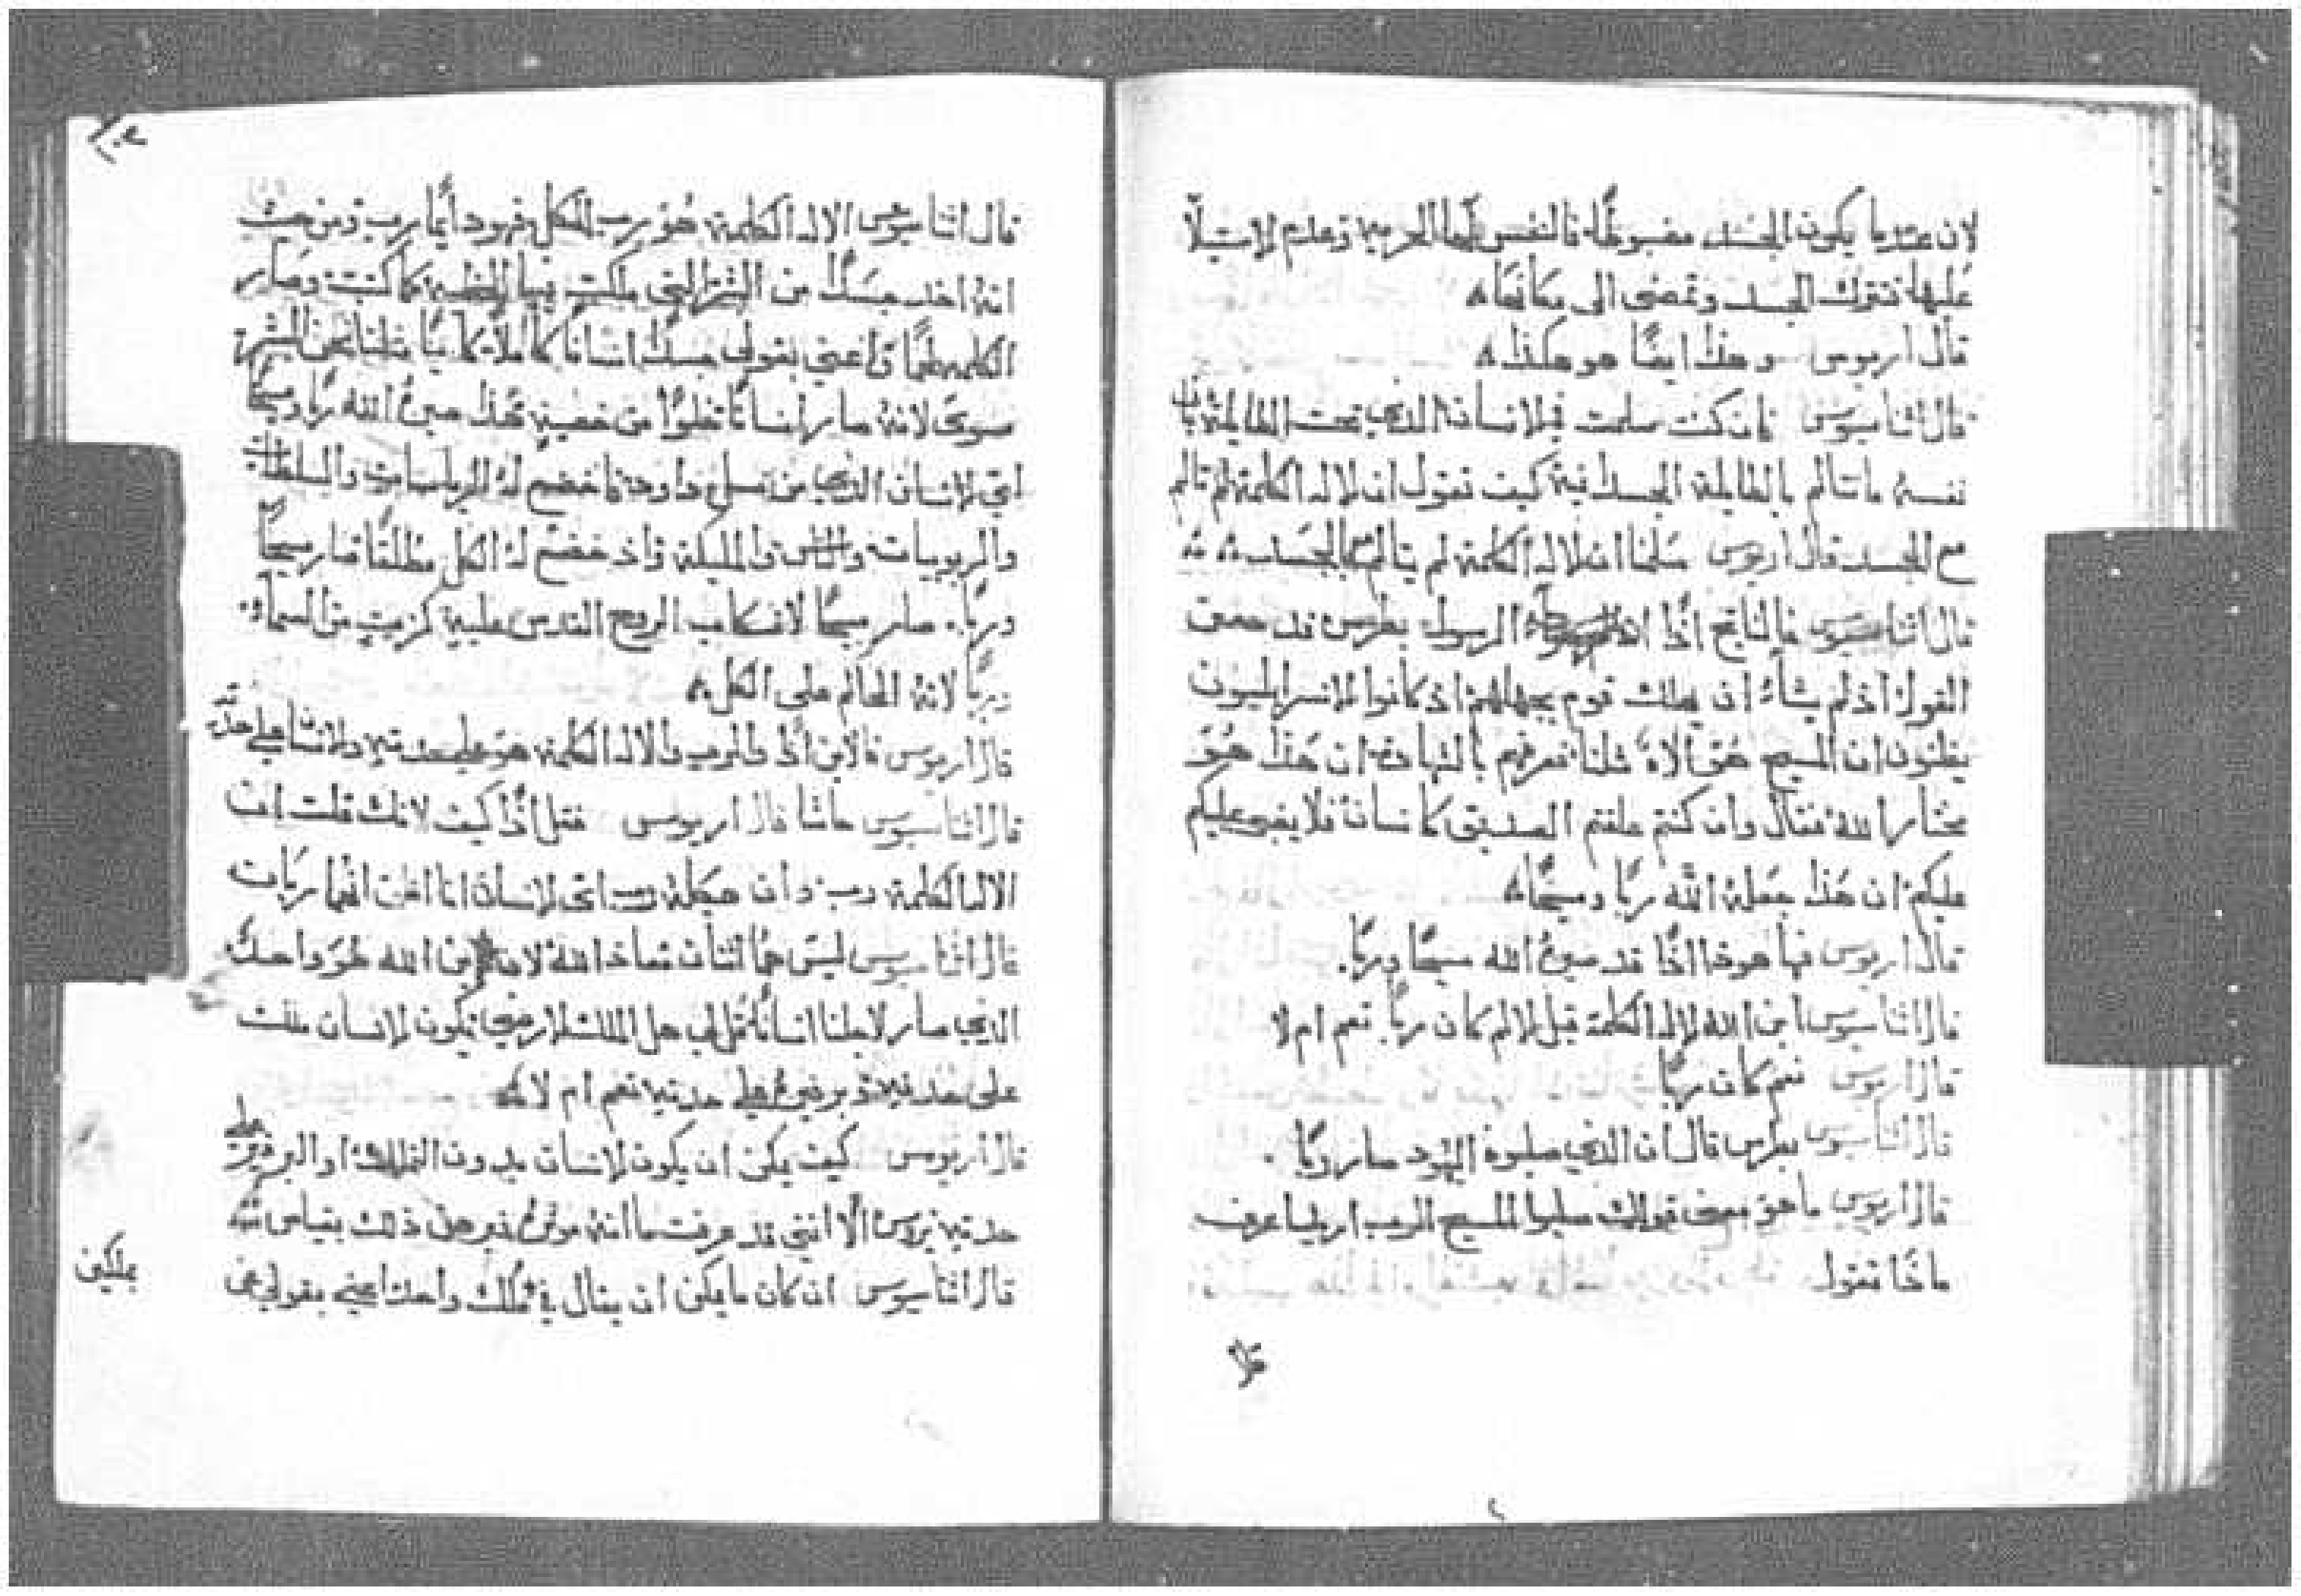 لان عندما يكون الجسد مضبوطا فالنفس لها الحرية وعدم الاستيلا
عليها فتترك الجسد وتمضى الى مكانها
قال اريوس وهذا ايضًا هو هكذا
قال اثناسيوس فان كنت سلمت في الانسان الذي تحت الطايلة بان
نفسه ما تتالم بالطايلة الجسدانية كيف تقول ان الاله الكلمة لم تالم
مع الجسد قال اريوس سلمنا ان الاله الكلمة لم يتالم بالجسد
قال اثناسيوس فالناتج اذًا ان الرسول بطرس قد حقق
القول اذ لم يشاء ان يهلك قوم بجهلهم اذ كانوا الاسراييليون
يظنون ان المسيح هو الاه فلنا نعرفهم بالشهادة ان هذا هو
مختار الله فقال وان كنتم علقتم الصديق كانسان فلا يخفى عليكم
عليكم ان هذا جعله الله ربًا ومسيحًا
قال اريوس فها هوذا اذًا قد صيره الله مسيحًا وربًا.
قال اثناسيوس ابن الله الاله الكلمة قبل الالم كان ربًا نعم ام لا
قال اريوس نعم كان ربًا
قال اثناسيوس بطرس قال ان الذي صلبوه اليهود صار ربًا .
قال اريوس ما هو معنى قولك صلبوا المسيح الرب اريد اعرف
ماذا تقول
قال
قال اثناسيوس الاله الكلمة هو رب الكل فهو دايمًا رب ومن حيث
انه اخذ جسدًا من البشر التي ملكت فيها الخطية كما كتب وصار
الكلمة لحمًا واعني بقولي جسدًا انسانًا كاملًا كاينًا مثلنا نحن البشر
سوى لانه صار انسانًا خلوًا من خطية هذا صيره الله ربًا ومسيحًا
اي الانسان الذي من نسل داود فاخضع له الرياسات والسلطات
والربوبيات والمليكة واذ خضع له الكل مطلقًا صار مسيحًا
وربًا. صار مسيحًا لانسكاب الروح القدس عليه كزيت من السماء
وربًا لانه الحاكم على الكل
قال اريوس فالابن اذًا والرب والاله الكلمة هو على حدته والانسان على حدته
قال اثناسيوس حاشا قال اريوس فقل اذًا كيف لانك قلت ان
الاله الكلمة رب وان هيكله رب اي الانسان انا اظن انهما ربان
قال اثناسيوس ليس هما اثنان معاذ الله لان ابن الله هو واحد
الذي صار لاجلنا انسانًا قل لي هل الملك الارضي يكون الانسان منه
على حدته وبرفيره على حدته نعم ام لا
قال اريوس كيف يمكن ان يكون الانسان بدون الملك او البرفير على
حدته يروس الا انني قد عرفت ما انه موثر خبرهن ذلك بقياس
قال اثناسيوس ان كان ما يمكن ان يقال في ملك واحد اعني بقولي عن
ملكين